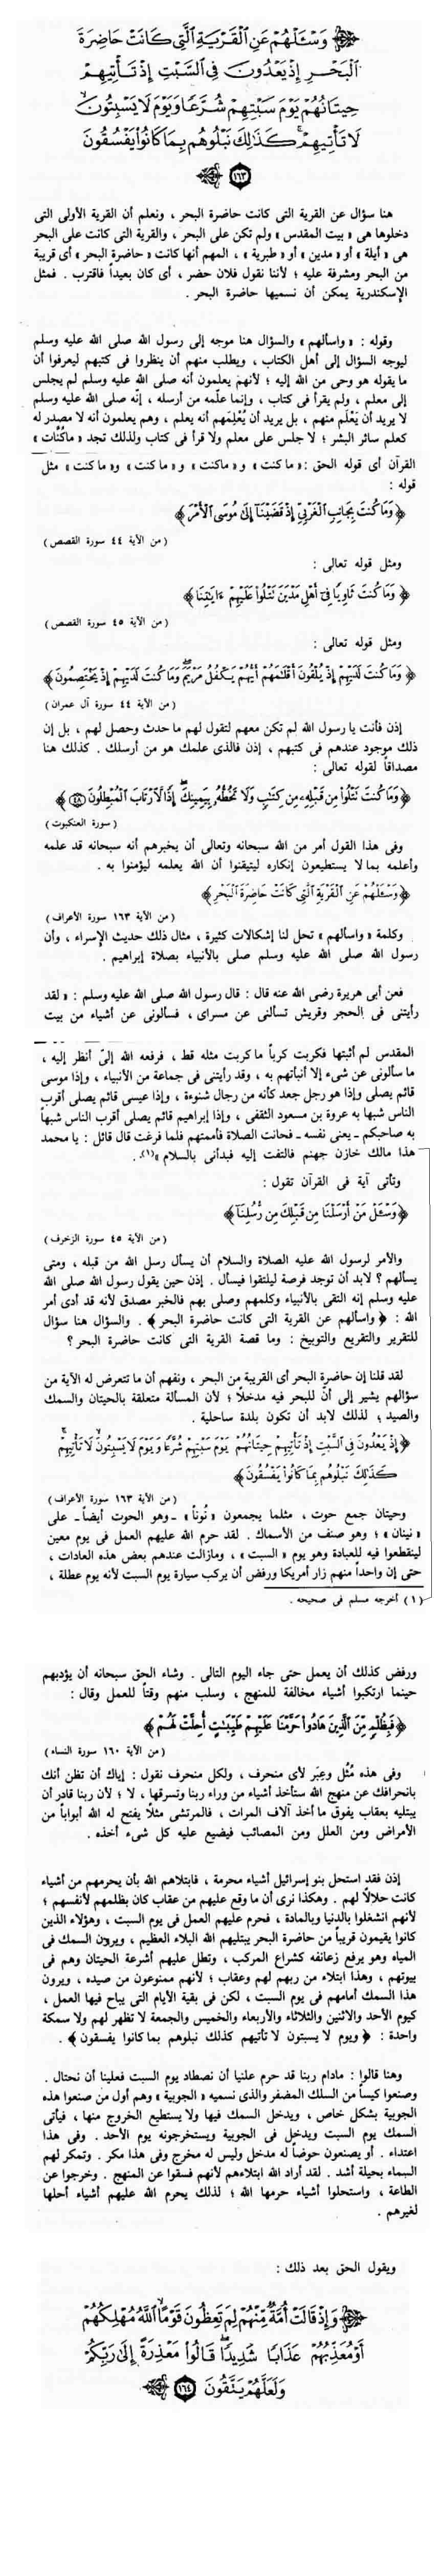 وَسْـَٔلْهُمْ عَنِ الْقَرْيَةِ الَّتِى كَانَتْ حَاضِرَةَ
الْبَحْرِ إِذْ يَعْدُونَ فِى السَّبْتِ إِذْ تَأْتِيهِمْ
حِيتَانُهُمْ يَوْمَ سَبْتِهِمْ شُرَّعًا وَيَوْمَ لَا يَسْبِتُونَ
لَا تَأْتِيهِمْ كَذَٰلِكَ نَبْلُوهُم بِمَا كَانُوا يَفْسُقُونَ
١٦٣
هنا سؤال عن القرية التى كانت حاضرة البحر ، ونعلم أن القرية الأولى التى
دخلوها هى « بيت المقدس » ولم تكن على البحر ، والقرية التى كانت على البحر
هى « أيلة » أو « مدين » أو « طبرية » ، المهم أنها كانت « حاضرة البحر » أى قريبة
من البحر ومشرفة عليه ؛ لأننا نقول فلان حضر ، أى كان بعيداً فاقترب . فمثل
الإسكندرية يمكن أن نسميها حاضرة البحر .
وقوله : « واسألهم » والسؤال هنا موجه إلى رسول الله صلى الله عليه وسلم
ليوجه السؤال إلى أهل الكتاب ، ويطلب منهم أن ينظروا فى كتبهم ليعرفوا أن
ما يقوله هو وحى من الله إليه ؛ لأنهم يعلمون أنه صلى الله عليه وسلم لم يجلس
إلى معلم ، ولم يقرأ فى كتاب ، وإنما علّمه من أرسله ، إنّه صلى الله عليه وسلم
لا يريد أن يَعْلَم منهم ، بل يريد أن يُعْلِمَهم أنه يعلم ، وهم يعلمون أنه لا مصدر له
كعلم سائر البشر ؛ لا جلس على معلم ولا قرأ فى كتاب ولذلك تجد « ماكُنَّات »
القرآن أى قوله الحق : « ما كنت » و « ماكنت » و « ما كنت » و« ما كنت » مثل
قوله :
﴿ وَمَا كُنتَ بِجَانِبِ الْغَرْبِىِّ إِذْ قَضَيْنَا إِلَىٰ مُوسَى الْأَمْرَ ﴾
( من الآية ٤٤ سورة القصص )
ومثل قوله تعالى :
﴿ وَمَا كُنتَ ثَاوِيًا فِى أَهْلِ مَدْيَنَ تَتْلُوا عَلَيْهِمْ ءَايَٰتِنَا ﴾
( من الآية ٤٥ سورة القصص )
ومثل قوله تعالى :
﴿ وَمَا كُنتَ لَدَيْهِمْ إِذْ يُلْقُونَ أَقْلَٰمَهُمْ أَيُّهُمْ يَكْفُلُ مَرْيَمَ وَمَا كُنتَ لَدَيْهِمْ إِذْ يَخْتَصِمُونَ ﴾
( من الآية ٤٤ سورة آل عمران )
إذن فأنت يا رسول الله لم تكن معهم لتقول لهم ما حدث وحصل لهم ، بل إن
ذلك موجود عندهم فى كتبهم ، إذن فالذى علمك هو من أرسلك . كذلك هنا
مصداقاً لقوله تعالى :
﴿ وَمَا كُنتَ تَتْلُوا مِن قَبْلِهِ مِن كِتَٰبٍ وَلَا تَخُطُّهُ بِيَمِينِكَ إِذًا لَّارْتَابَ الْمُبْطِلُونَ ٤٨ ﴾
( سورة العنكبوت )
وفى هذا القول أمر من الله سبحانه وتعالى أن يخبرهم أنه سبحانه قد علمه
وأعلمه بما لا يستطيعون إنكاره ليتيقنوا أن الله يعلمه ليؤمنوا به .
﴿ وَسْـَٔلْهُمْ عَنِ الْقَرْيَةِ الَّتِى كَانَتْ حَاضِرَةَ الْبَحْرِ ﴾
( من الآية ١٦٣ سورة الأعراف )
وكلمة « واسألهم » تحل لنا إشكالات كثيرة ، مثال ذلك حديث الإسراء ، وأن
رسول الله صلى الله عليه وسلم صلى بالأنبياء بصلاة إبراهيم .
فعن أبى هريرة رضى الله عنه قال : قال رسول الله صلى الله عليه وسلم : « لقد
رأيتنى فى الحجر وقريش تسألنى عن مسراى ، فسألونى عن أشياء من بيت
المقدس لم أثبتها فكربت كرباً ما كربت مثله قط ، فرفعه الله إلىّ أنظر إليه ،
ما سألونى عن شىء إلا أنبأتهم به ، وقد رأيتنى فى جماعة من الأنبياء ، وإذا موسى
قائم يصلى وإذا هو رجل جعد كأنه من رجال شنوءة ، وإذا عيسى قائم يصلى أقرب
الناس شبها به عروة بن مسعود الثقفى ، وإذا إبراهيم قائم يصلى أقرب الناس شبهاً
به صاحبكم ـ يعنى نفسه ـ فحانت الصلاة فأممتهم فلما فرغت قال قائل : يا محمد
هذا مالك خازن جهنم فالتفت إليه فبدأنى بالسلام »(١) .
وتأتى آية فى القرآن تقول :
﴿ وَسْـَٔلْ مَنْ أَرْسَلْنَا مِن قَبْلِكَ مِن رُّسُلِنَا ﴾
( من الآية ٤٥ سورة الزخرف )
والأمر لرسول الله عليه الصلاة والسلام أن يسأل رسل الله من قبله ، ومتى
يسألهم ؟ لابد أن توجد فرصة ليلتقوا فيسأل . إذن حين يقول رسول الله صلى الله
عليه وسلم إنه التقى بالأنبياء وكلمهم وصلى بهم فالخبر مصدق لأنه قد أدى أمر
الله : ﴿ واسألهم عن القرية التى كانت حاضرة البحر ﴾ . والسؤال هنا سؤال
للتقرير والتقريع والتوبيخ : وما قصة القرية التى كانت حاضرة البحر ؟
لقد قلنا إن حاضرة البحر أى القريبة من البحر ، ونفهم أن ما تتعرض له الآية من
سؤالهم يشير إلى أنّ للبحر فيه مدخلاً ؛ لأن المسألة متعلقة بالحيتان والسمك
والصيد ، لذلك لابد أن تكون بلدة ساحلية .
﴿ إِذْ يَعْدُونَ فِى السَّبْتِ إِذْ تَأْتِيهِمْ حِيتَانُهُمْ يَوْمَ سَبْتِهِمْ شُرَّعًا وَيَوْمَ لَا يَسْبِتُونَ لَا تَأْتِيهِمْ
كَذَٰلِكَ نَبْلُوهُم بِمَا كَانُوا يَفْسُقُونَ ﴾
( من الآية ١٦٣ سورة الأعراف )
وحيتان جمع حوت ، مثلما يجمعون « نُوناً » ـ وهو الحوت أيضاً ـ على
« نينان » ؛ وهو صنف من الأسماك . لقد حرم الله عليهم العمل فى يوم معين
لينقطعوا فيه للعبادة وهو يوم « السبت » ، ومازالت عندهم بعض هذه العادات ،
حتى إن واحداً منهم زار أمريكا ورفض أن يركب سيارة يوم السبت لأنه يوم عطلة ،
( ١ ) أخرجه مسلم فى صحيحه .
ورفض كذلك أن يعمل حتى جاء اليوم التالى . وشاء الحق سبحانه أن يؤدبهم
حينما ارتكبوا أشياء مخالفة للمنهج ، وسلب منهم وقتاً للعمل وقال :
﴿ فَبِظُلْمٍ مِّنَ الَّذِينَ هَادُوا حَرَّمْنَا عَلَيْهِمْ طَيِّبَٰتٍ أُحِلَّتْ لَهُمْ ﴾
( من الآية ١٦٠ سورة النساء )
وفى هذه مُثُل وعِبَر لأى منحرف ، ولكل منحرف نقول : إياك أن تظن أنك
بانحرافك عن منهج الله ستأخذ أشياء من وراء ربنا وتسرقها ، لا ؛ لأن ربنا قادر أن
يبتليه بعقاب يفوق ما أخذ آلاف المرات ، فالمرتشى مثلاً يفتح له الله أبواباً من
الأمراض ومن العلل ومن المصائب فيضيع عليه كل شىء أخذه .
إذن فقد استحل بنو إسرائيل أشياء محرمة ، فابتلاهم الله بأن يحرمهم من أشياء
كانت حلالاً لهم . وهكذا نرى أن ما وقع عليهم من عقاب كان بظلمهم لأنفسهم ؛
لأنهم انشغلوا بالدنيا وبالمادة ، فحرم عليهم العمل فى يوم السبت ، وهؤلاء الذين
كانوا يقيمون قريباً من حاضرة البحر يبتليهم الله البلاء العظيم ، ويرون السمك فى
المياه وهو يرفع زعانفه كشراع المركب ، وتطل عليهم أشرعة الحيتان وهم فى
بيوتهم ، وهذا ابتلاء من ربهم لهم وعقاب ؛ لأنهم ممنوعون من صيده ، ويرون
هذا السمك أمامهم فى يوم السبت ، لكن فى بقية الأيام التى يباح فيها العمل ،
كيوم الأحد والاثنين والثلاثاء والأربعاء والخميس والجمعة لا تظهر لهم ولا سمكة
واحدة : ﴿ ويوم لا يسبتون لا تأتيهم كذلك نبلوهم بما كانوا يفسقون ﴾ .
وهنا قالوا : مادام ربنا قد حرم علنيا أن نصطاد يوم السبت فعلينا أن نحتال .
وصنعوا كيساً من السلك المضفر والذى نسميه « الجوبية » وهم أول من صنعوا هذه
الجوبية بشكل خاص ، ويدخل السمك فيها ولا يستطيع الخروج منها ، فيأتى
السمك يوم السبت ويدخل فى الجوبية ويستخرجونه يوم الأحد . وفى هذا
اعتداء . أو يصنعون حوضاً له مدخل وليس له مخرج وفى هذا مكر . وتمكر لهم
السماء بحيلة أشد . لقد أراد الله ابتلاءهم لأنهم فسقوا عن المنهج . وخرجوا عن
الطاعة ، واستحلوا أشياء حرمها الله ؛ لذلك يحرم الله عليهم أشياء أحلها
لغيرهم .
ويقول الحق بعد ذلك :
وَإِذْ قَالَتْ أُمَّةٌ مِّنْهُمْ لِمَ تَعِظُونَ قَوْمًا اللَّهُ مُهْلِكُهُمْ
أَوْ مُعَذِّبُهُمْ عَذَابًا شَدِيدًا قَالُوا مَعْذِرَةً إِلَىٰ رَبِّكُمْ
وَلَعَلَّهُمْ يَتَّقُونَ ١٦٤